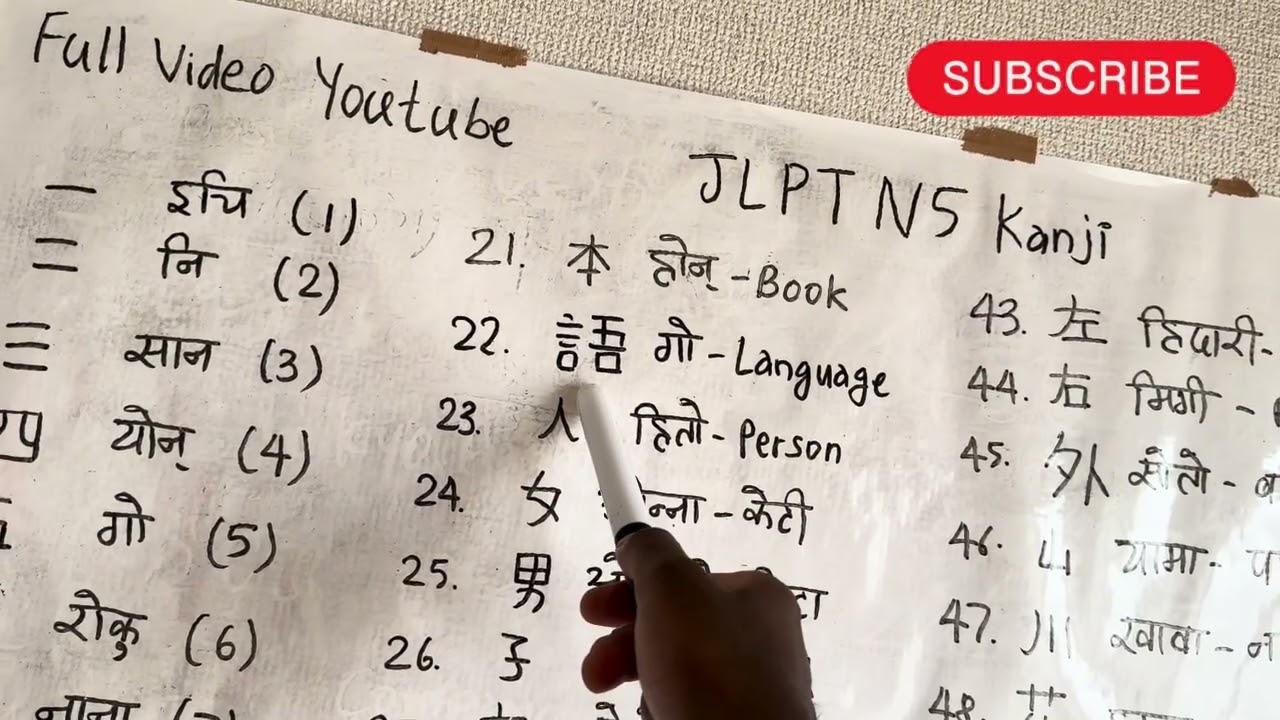 Full Video Youtube
SUBSCRIBE
JLPT N5 Kanji
一 इचि (1)
二 नि (2)
三 सान (3)
四 योन् (4)
गो (5)
रोकु (6)
नाना
21. 本 होन् - Book
22. 語 गो - Language
23. 人 हितो - Person
24. 女 - केटी
25. 男
26. 子
43. 左 हिदारी -
44. 右 मिगी -
45. 外 सोतो -
46. 山 यामा -
47. 川 खावा -
48.